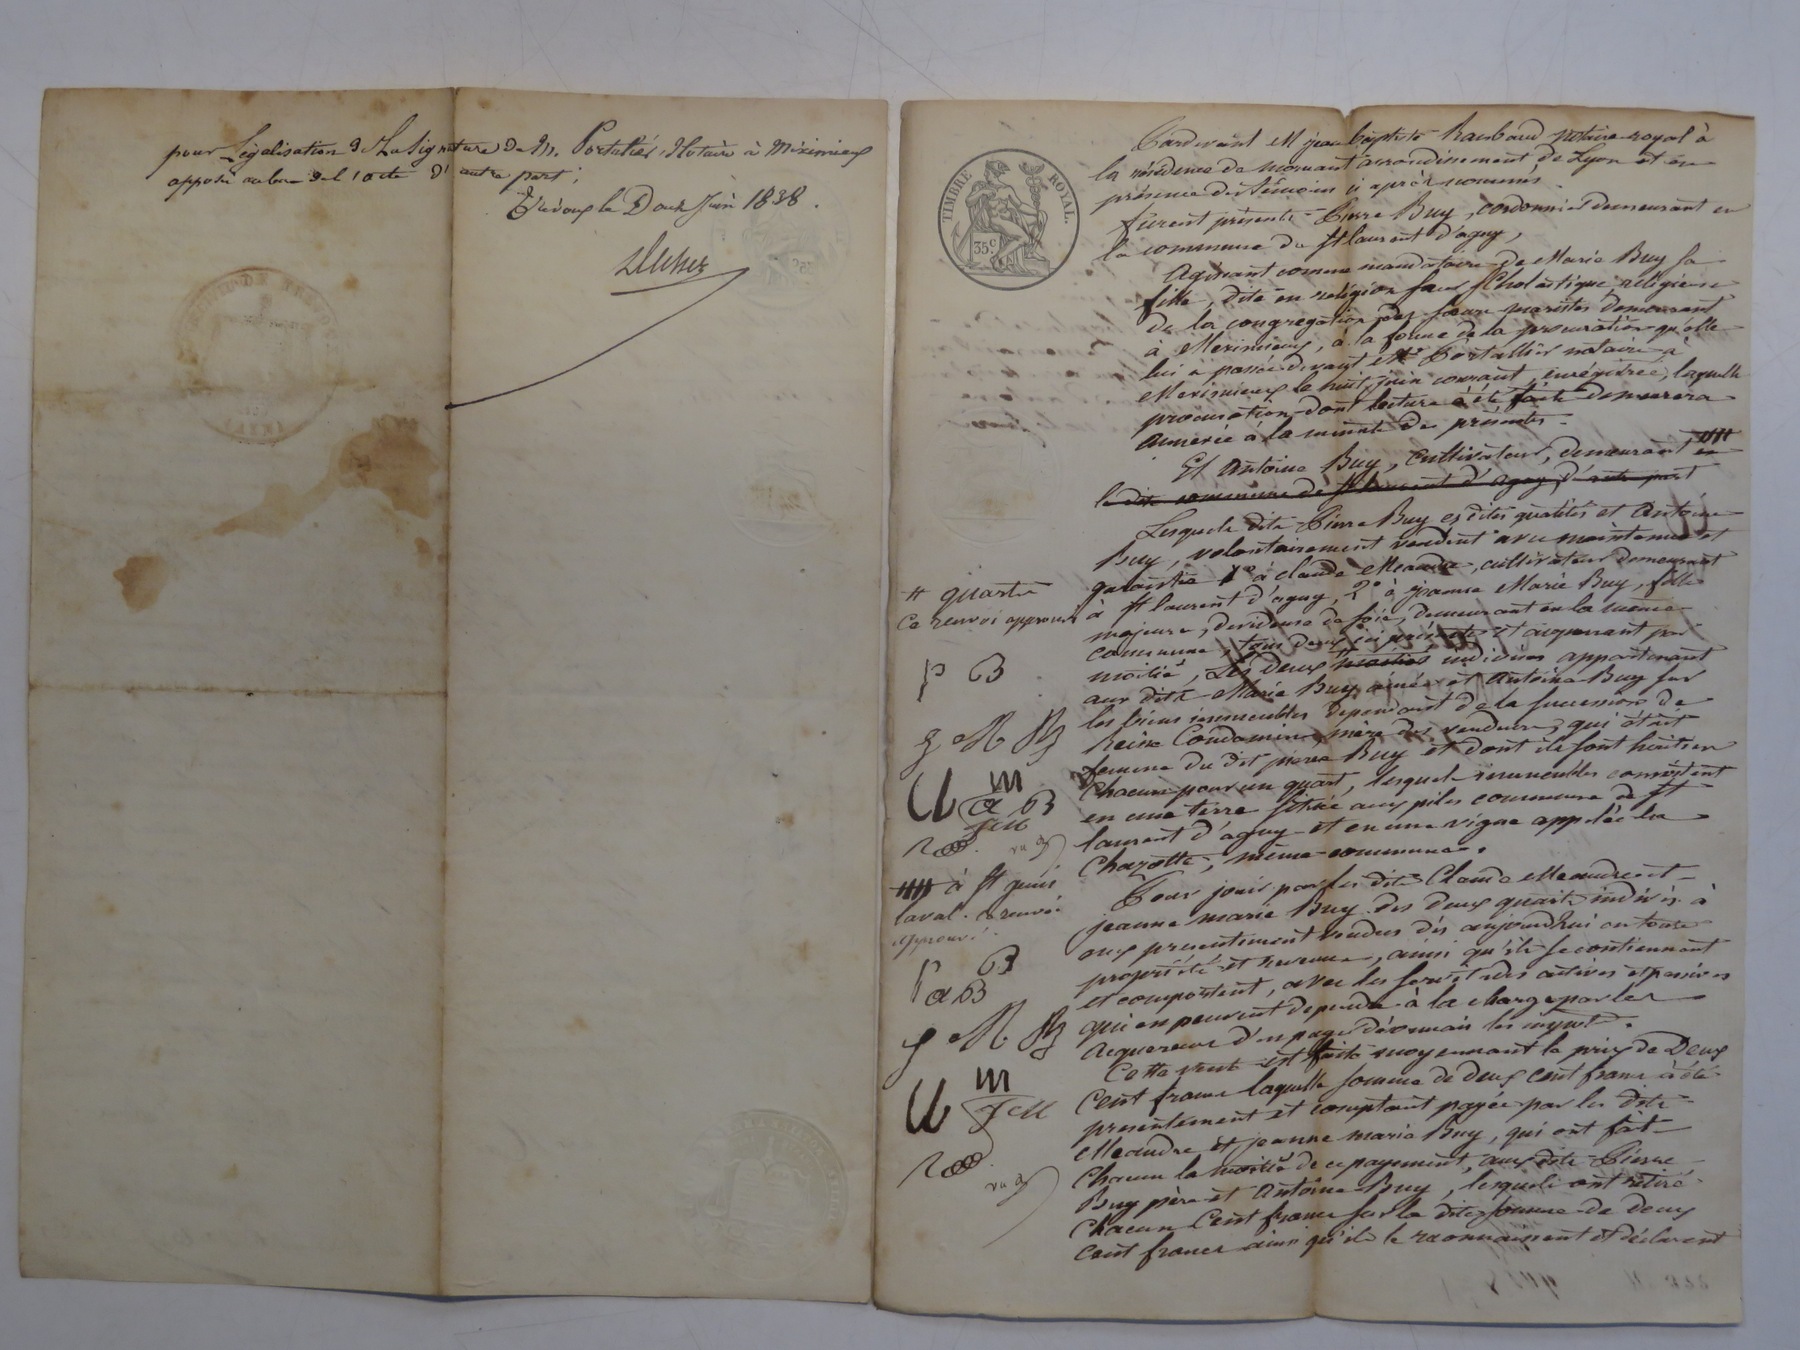 pour Légalisation de la Signature de M. Portalié, Notaire à Méximieux
apposée au bas de l'acte d'autre part;
Trévoux le Douze Juin 1838.
TIMBRE ROYAL.
35c
Pardevant M jean baptiste Raubaud notaire royal à
la résidence de mornant arrondissement de Lyon et en
présence des témoins ci après nommés.
furent présents - Pierre Buy, cordonnier demeurant en
la commune de St laurent d'agny,
Agissant comme mandataire de Marie Buy sa
fille, dite en religion Soeur Scholastique, religieuse
de la congrégation des soeurs maristes demeurant
à Meximieux, à la forme de la procuration qu'elle
lui a passée devant Me Portallier notaire à
Meximieux le huit juin courant, enregistrée, laquelle
procuration dont lecture a été faite demeurera
annexée à la minute des présentes.
Et Antoine Buy, Cultivateur, demeurant en
la dite commune de St laurent d'agny, d'autre part
Lesquels dits Pierre Buy es dites qualités et Antoine
Buy, volontairement vendent avec maintenue et
garantie 1º à claude Meandre, cultivateur demeurant
à St laurent d'agny, 2º à jeanne Marie Buy, fille
majeure, devideuse de soie, demeurant en la même
commune, tous deux ici présents et acquerant par
moitié, Les deux moitiés indivises appartenant
aux dits Marie Buy ainée et Antoine Buy sur
les biens immeubles dependant de la succession de
Reine Condamine, mère des vendeurs, qui était
femme du dit pierre Buy et dont ils sont héritiers
Chacun pour un quart, lesquels immeubles consistent
en une terre située aux piles commune de St
laurent d'agny et en une vigne appelée la
Chazotte, même commune.
Pour jouir par les dits Claude Meandre et
jeanne marie Buy des deux quarts indivis à
eux presentement vendus dès aujourdhui en toute
propriété et revenus, ainsi qu'ils se contiennent
et comportent, avec les servitudes actives et passives
qui en peuvent dependre à la charge par les
acquereurs d'en payer désormais les impots.
Cette vente est faite moyennant le prix de Deux
Cent francs laquelle somme de deux cent francs a été
presentement et comptant payée par les dits
Meandre et jeanne marie Buy, qui ont fait
Chacun la moitié de ce payement, aux dits Pierre
Buy père et Antoine Buy, lesquels ont retiré
Chacun Cent francs sur la dite somme de deux
cent francs ainsi qu'ils le reconnaissent et déclarent
# quarts
Ce renvoi approuvé
p B
g M B
m
a B
JCM
à St genis
laval. renvoi
approuvé.
p B
a B
g M B
m
JCM